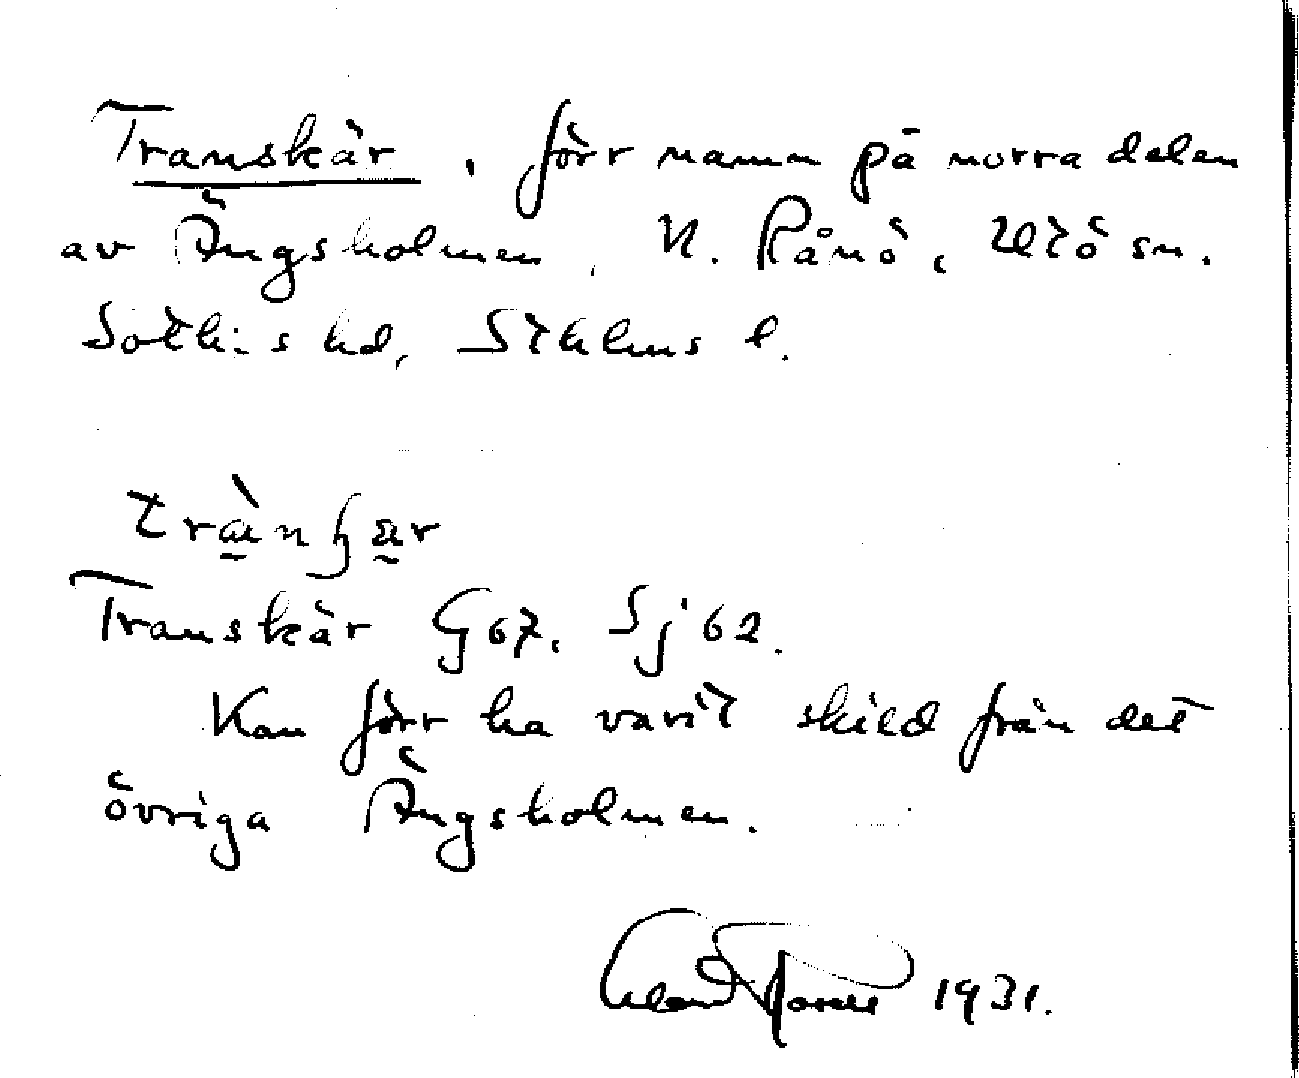 Transkär, förr namn på norra delen
av Ängsholmen, N. Rånö, Utö sn.
Sotk:s hd, Sthlms l.
Transkär G67. Sj 62.
Kan förr ha varit skild från det
övriga Ängsholmen.
1931.